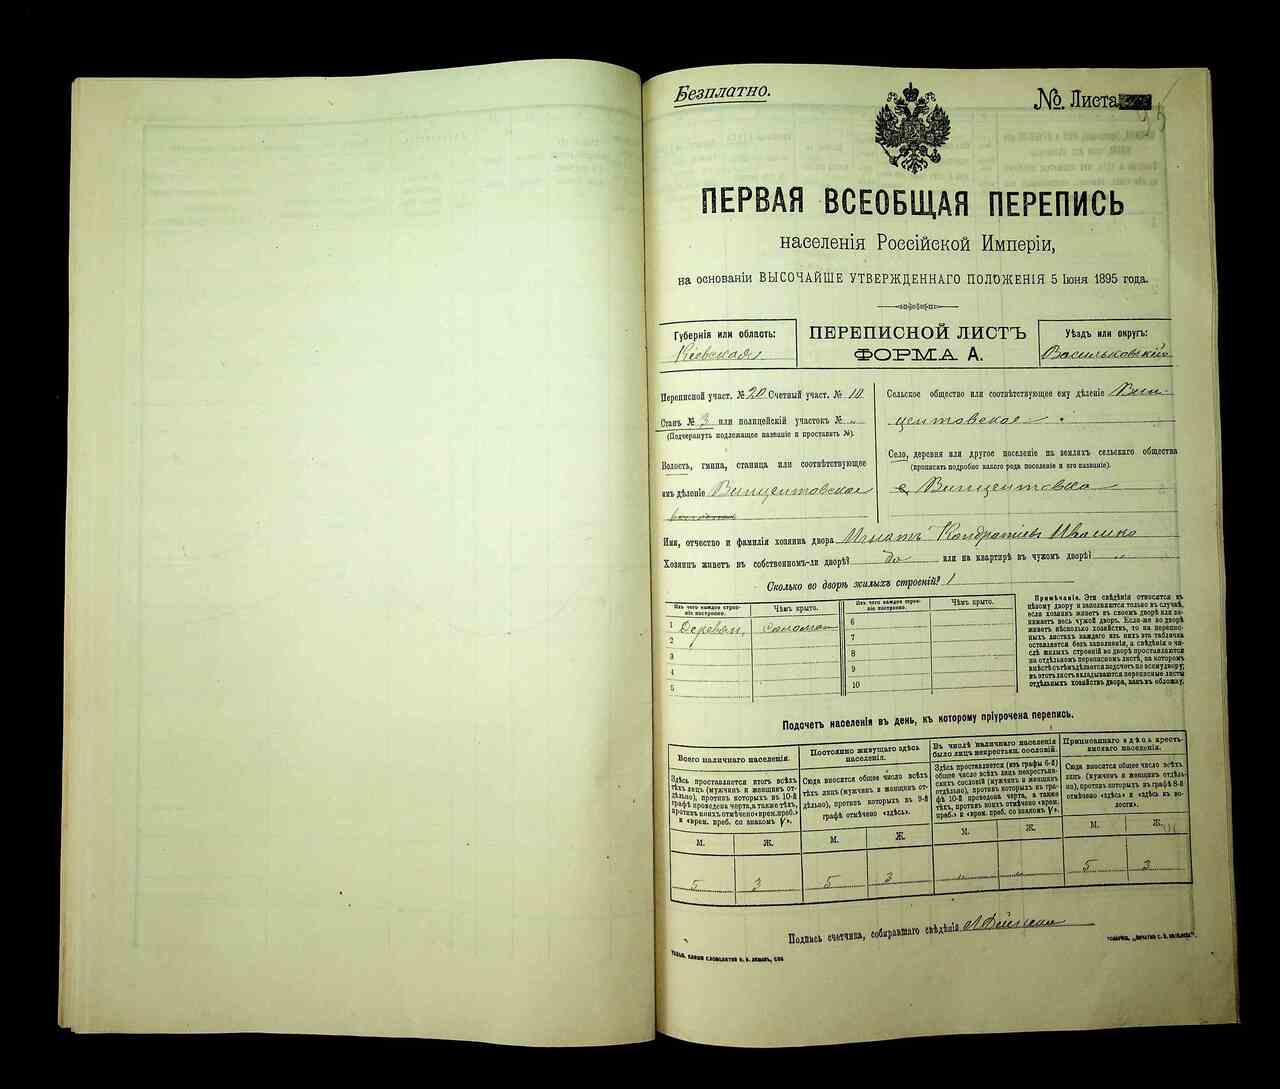 Безплатно.
№. Листа
ПЕРВАЯ ВСЕОБЩАЯ ПЕРЕПИСЬ
населенія Россійской Имперіи,
на основаніи ВЫСОЧАЙШЕ УТВЕРЖДЕННАГО ПОЛОЖЕНІЯ 5 Іюня 1895 года.
Губернія или область:
Кіевская
ПЕРЕПИСНОЙ ЛИСТЪ
ФОРМА А.
Уѣздъ или округъ:
Васильковскій
Переписной участ. № 20 Счетный участ. № 10
Станъ № 3 или полицейскій участокъ № „
(Подчеркнуть подлежащее названіе и проставить №).
Волость, гмина, станица или соотвѣтствующее
имъ дѣленіе Винцентовское
Сельское общество или соотвѣтствующее ему дѣленіе Вин-
центовское
Село, деревня или другое поселеніе на земляхъ сельскаго общества
(прописать подробно какого рода поселеніе и его названіе).
с. Винцентовка
Имя, отчество и фамилія хозяина двора Игнатъ Кондратіевъ Ивасико
Хозяинъ живетъ въ собственномъ-ли дворѣ? да или на квартирѣ въ чужомъ дворѣ? „
Сколько во дворѣ жилыхъ строеній? 1
Изъ чего каждое строе-
ніе построено.
Чѣмъ крыто.
1 Деревян, солома
2
3
4
5
Изъ чего каждое строе-
ніе построено.
Чѣмъ крыто.
6
7
8
9
10
Примѣчаніе. Эти свѣдѣнія относятся къ
цѣлому двору и заполняются только въ случаѣ,
если хозяинъ живетъ въ своемъ дворѣ или за-
нимаетъ весь чужой дворъ. Если-же во дворѣ
живетъ нѣсколько хозяйствъ, то на перепис-
ныхъ листахъ каждаго изъ нихъ эта табличка
оставляется безъ заполненія, а свѣдѣнія о чи-
слѣ жилыхъ строеній во дворѣ проставляются
на отдѣльномъ переписномъ листѣ, на которомъ
вмѣстѣ съ тѣмъ дѣлается подсчетъ по всему двору;
въ этотъ листъ вкладываются переписные листы
отдѣльныхъ хозяйствъ двора, какъ въ обложку.
Подсчетъ населенія въ день, къ которому пріурочена перепись.
Всего наличнаго населенія.
Здѣсь проставляется итогъ всѣхъ
тѣхъ лицъ (мужчинъ и женщинъ от-
дѣльно), противъ которыхъ въ 10-й
графѣ проведена черта, а также тѣхъ,
противъ коихъ отмѣчено «врем. преб.»
и «врем. преб. со знакомъ V».
М. Ж.
5 3
Постоянно живущаго здѣсь
населенія.
Сюда вносятся общее число всѣхъ
тѣхъ лицъ (мужчинъ и женщинъ от-
дѣльно), противъ которыхъ въ 9-й
графѣ отмѣчено «здѣсь».
М. Ж.
5 3
Въ числѣ наличнаго населенія
было лицъ некрестьян. сословій.
Здѣсь проставляется (изъ графы 6-й)
общее число всѣхъ лицъ некрестьян-
скихъ сословій (мужчинъ и женщинъ
отдѣльно), противъ которыхъ въ гра-
фѣ 10-й проведена черта, а также
противъ коихъ отмѣчено «врем.
преб.» и «врем. преб. со знакомъ V».
М. Ж.
„ „
Приписаннаго здѣсь кресть-
янскаго населенія.
Сюда вносятся общее число всѣхъ
лицъ (мужчинъ и женщинъ отдѣль-
но), противъ которыхъ въ графѣ 8-й
отмѣчено «здѣсь» и «здѣсь въ во-
лости».
М. Ж.
5 3
Подпись счетчика, собиравшаго свѣдѣнія